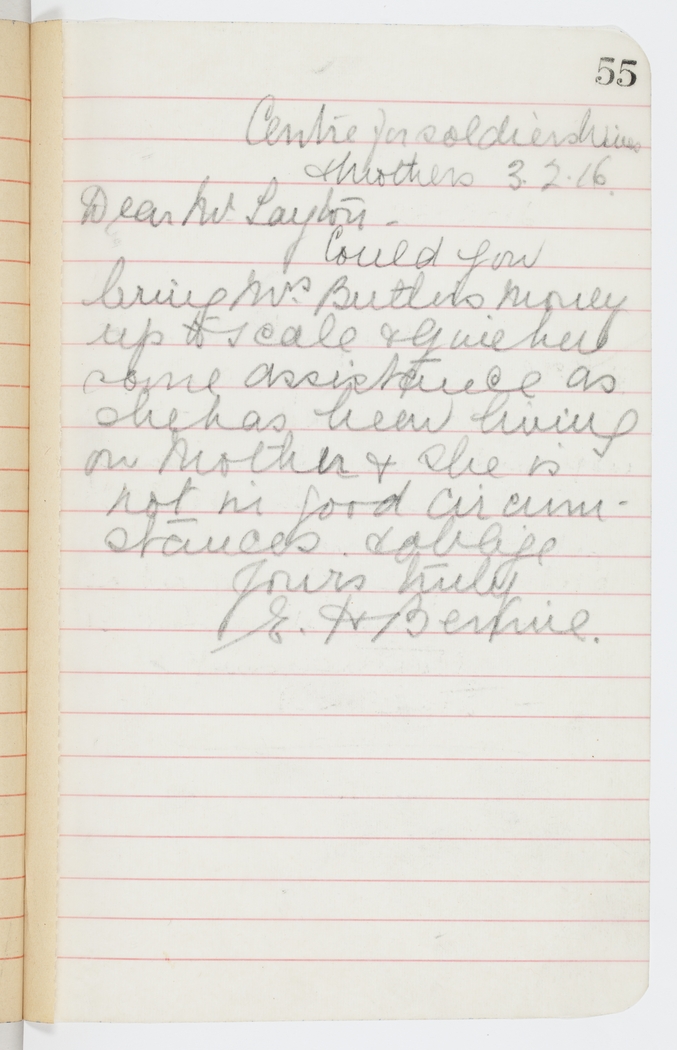 55
Centre for soldiers wives
& Mothers 3.2.16.
Dear Mr Layton -
Could you
bring Mrs Butlers Money
up to scale & give her
some assistance as
she has been living
on Mother & she is
not in good circum-
stances. & oblige
Yours truly
E. H.